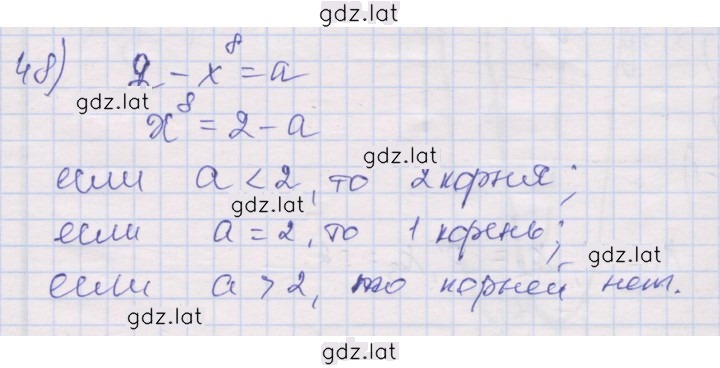 gdz.lat
48) 2 - x⁸ = a
gdz.lat
x⁸ = 2 - a
gdz.lat
если a < 2, то 2 корня;
gdz.lat
если a = 2, то 1 корень;
gdz.lat
если a > 2, то корней нет.
gdz.lat
gdz.lat